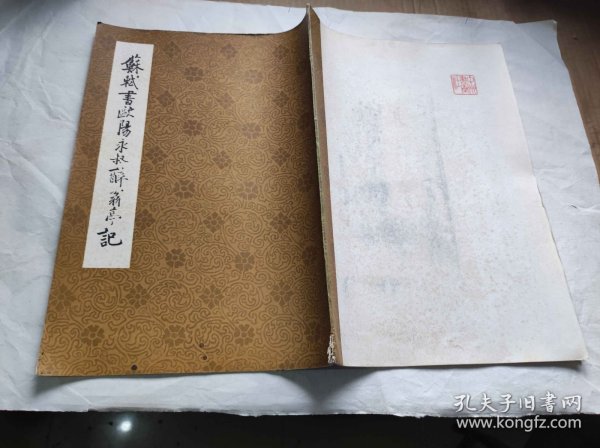 蘇軾書歐陽永叔醉翁亭記
孔夫子旧书网
www.kongfz.com